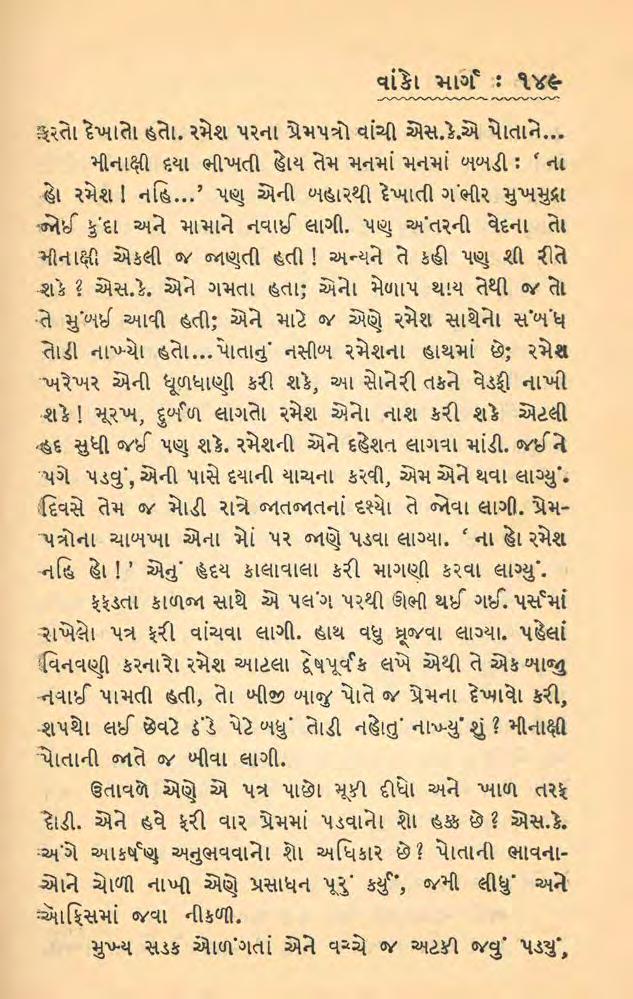 વાંકો માર્ગ : ૧૪૯
ફરતો દેખાતો હતો. રમેશ પરના પ્રેમપત્રો વાંચી એસ.કે.એ પોતાને...
મીનાક્ષી દયા ભીખતી હોય તેમ મનમાં મનમાં બબડી : ‘ ના
હો રમેશ ! નહિ...’ પણ એની બહારથી દેખાતી ગંભીર મુખમુદ્રા
જોઈ કુંદા અને મામાને નવાઈ લાગી. પણ અંતરની વેદના તો
મીનાક્ષી એકલી જ જાણતી હતી ! અન્યને તે કહી પણ શી રીતે
શકે ? એસ.કે. એને ગમતા હતા; એનો મેળાપ થાય તેથી જ તો
તે મુંબઈ આવી હતી; એને માટે જ એણે રમેશ સાથેનો સંબંધ
તોડી નાખ્યો હતો...પોતાનું નસીબ રમેશના હાથમાં છે; રમેશ
ખરેખર એની ધૂળધાણી કરી શકે, આ સોનેરી તકને વેડફી નાખી
શકે ! મૂરખ, દુર્બળ લાગતો રમેશ એનો નાશ કરી શકે એટલી
હદ સુધી જઈ પણ શકે. રમેશની એને દહેશત લાગવા માંડી. જઈને
પગે પડવું, એની પાસે દયાની યાચના કરવી, એમ એને થવા લાગ્યું.
દિવસે તેમ જ મોડી રાત્રે જાતજાતનાં દશ્યો તે જોવા લાગી. પ્રેમ-
પત્રોના ચાબખા એના મોં પર જાણે પડવા લાગ્યા. ‘ ના હો રમેશ
નહિ હો ! ’ એનું હૃદય કાલાવાલા કરી માગણી કરવા લાગ્યું.
ફફડતા કાળજા સાથે એ પલંગ પરથી ઊભી થઈ ગઈ. પર્સમાં
રાખેલો પત્ર ફરી વાંચવા લાગી. હાથ વધુ ધ્રૂજવા લાગ્યા. પહેલાં
વિનવણી કરનારો રમેશ આટલા દ્વેષપૂર્વક લખે એથી તે એક બાજુ
નવાઈ પામતી હતી, તો બીજી બાજુ પોતે જ પ્રેમના દેખાવો કરી,
શપથો લઈ છેવટે ઠંડે પેટે બધું તોડી નહોતું નાખ્યું શું ? મીનાક્ષી
પોતાની જાતે જ બીવા લાગી.
ઉતાવળે એણે એ પત્ર પાછો મૂકી દીધો અને ખાળ તરફ
દોડી. એને હવે ફરી વાર પ્રેમમાં પડવાનો શો હક્ક છે ? એસ.કે.
અંગે આકર્ષણ અનુભવવાનો શો અધિકાર છે ? પોતાની ભાવના-
ઓને ચોળી નાખી એણે પ્રસાધન પૂરું કર્યું, જમી લીધું અને
ઑફિસમાં જવા નીકળી.
મુખ્ય સડક ઓળંગતાં એને વચ્ચે જ અટકી જવું પડયું,